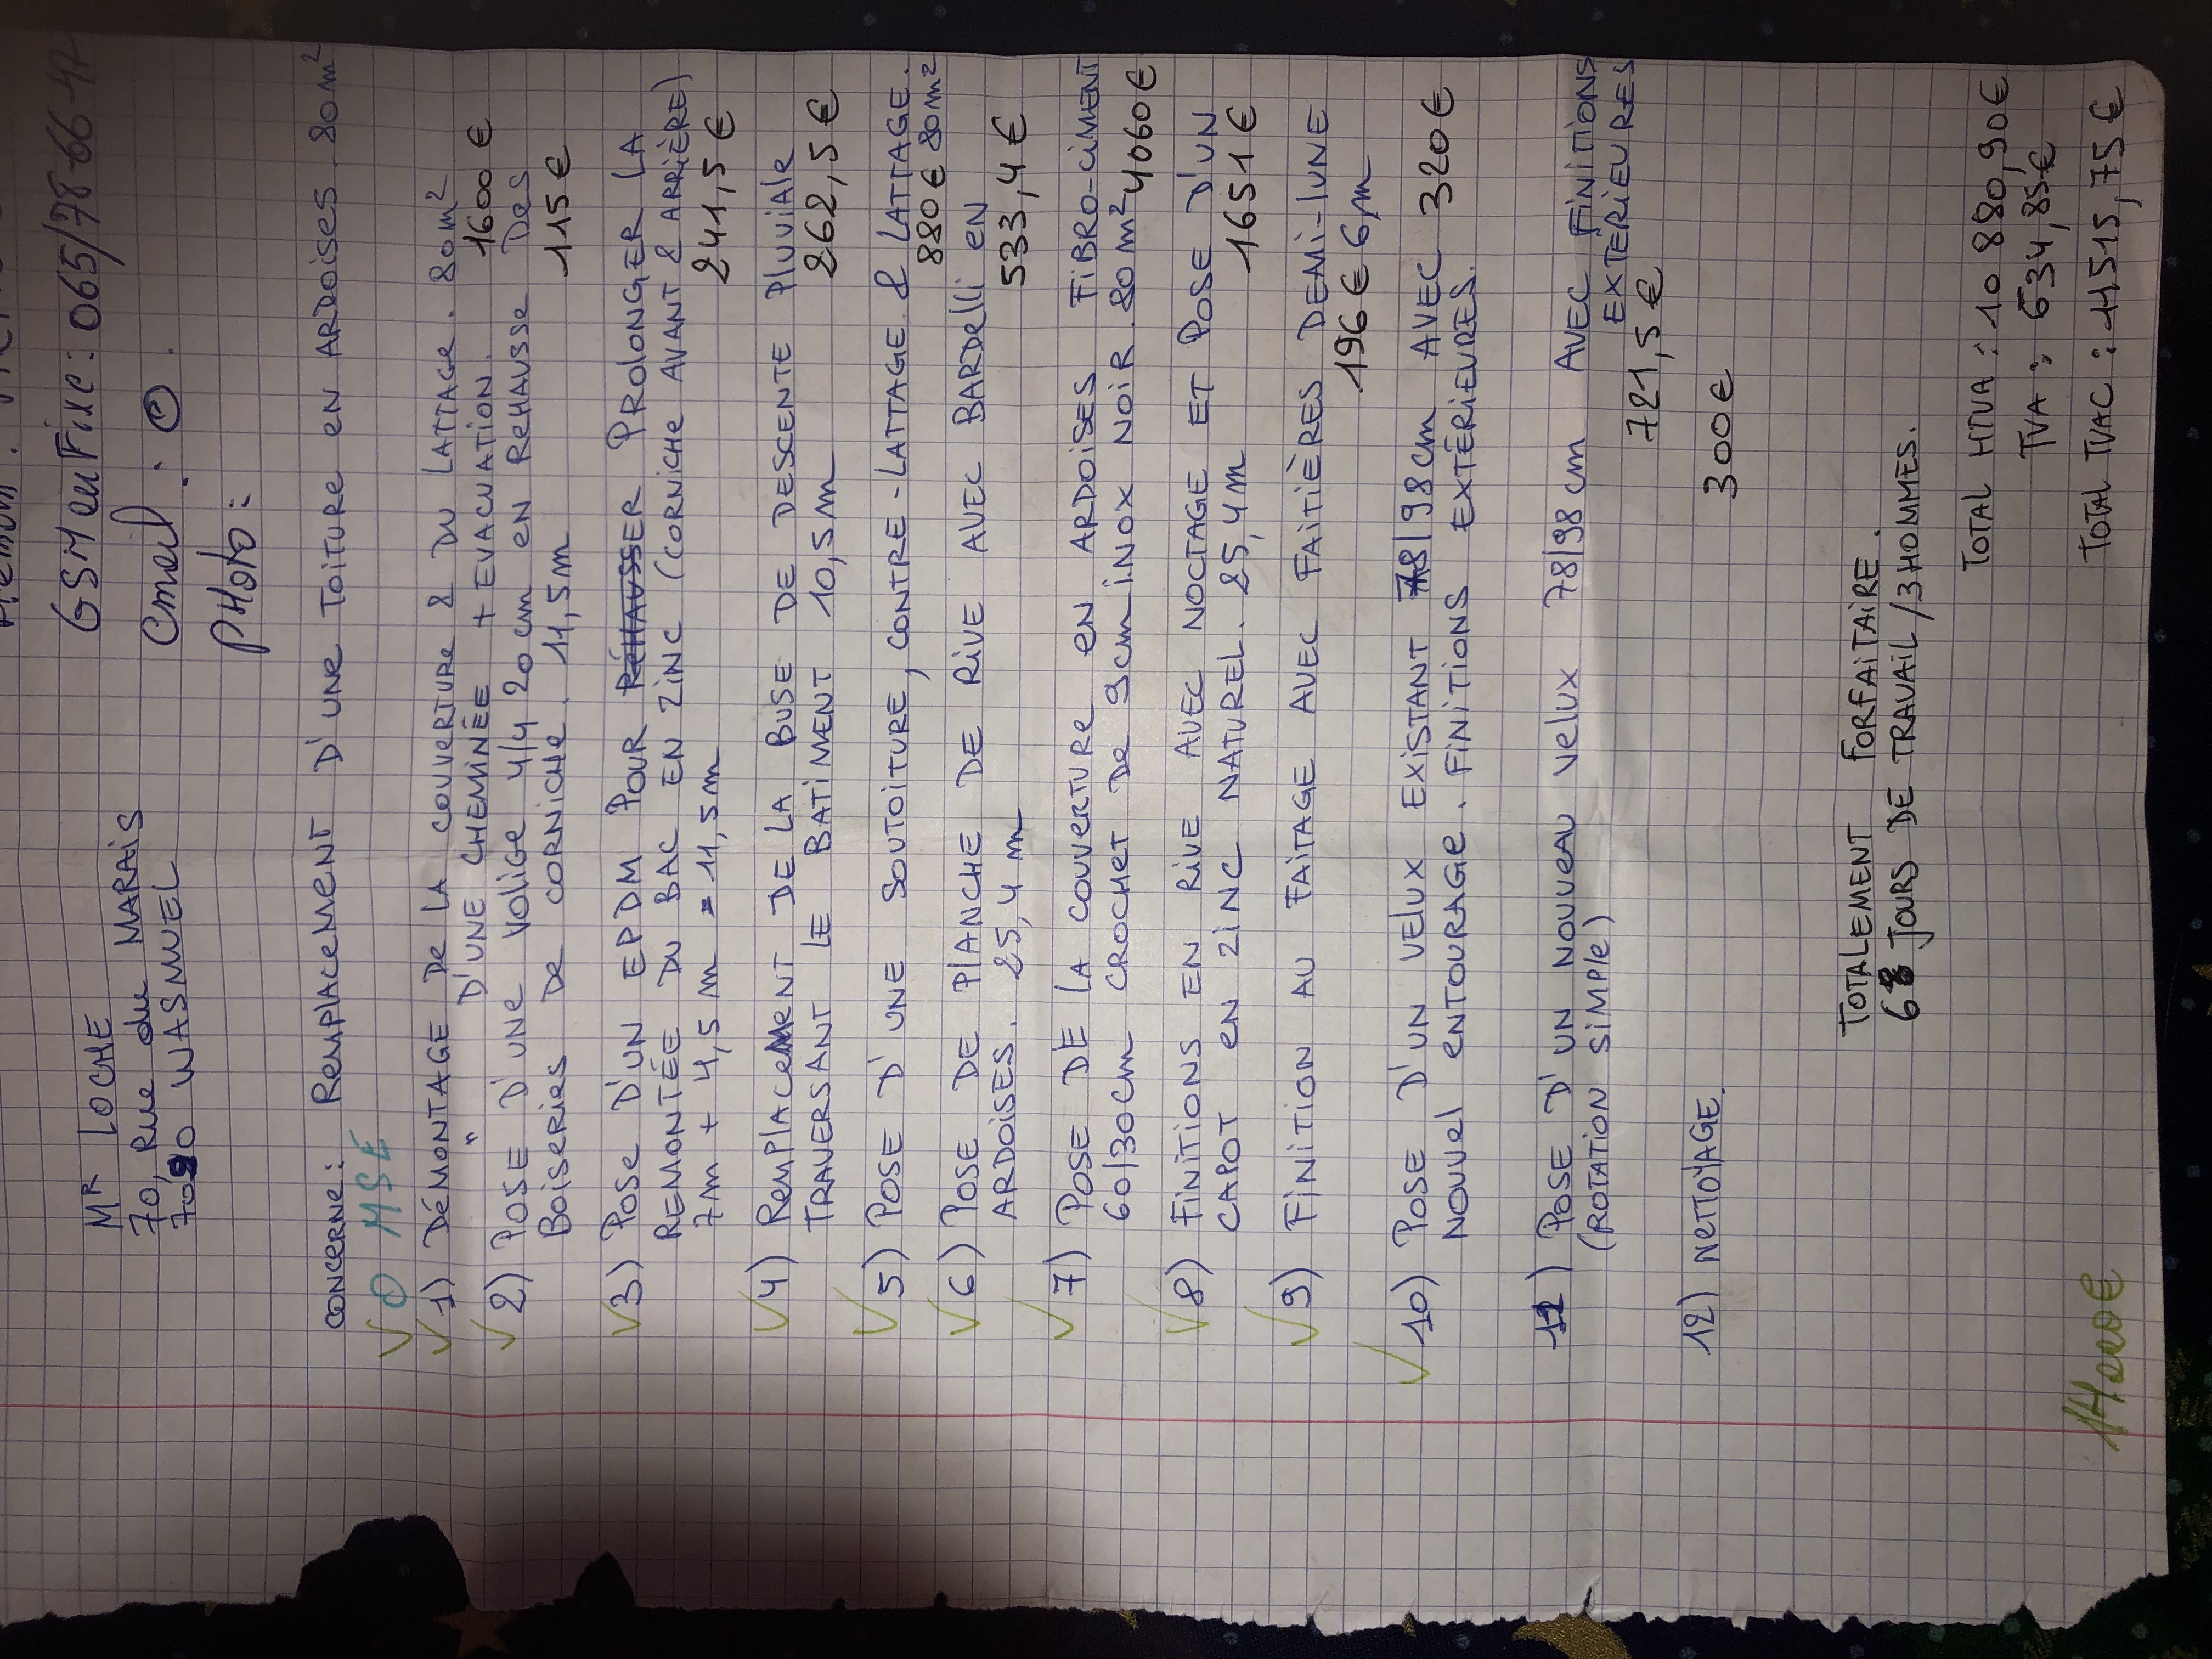 GSM ou Fixe : 065/78-66-47
Email :
PHOTO :
MR LOCHE
70, Rue du MARAIS
WASMUEL
CONCERNE : RemplaceMENT D'UNE TOiTURE EN ARDOiSES. 80m²
✓ O MSE
✓ 1) DÉMONTAGE De LA COUVERTURE & DU LATTAGE. 80m²
" D'UNE CHEMINÉE + EVACUATION. 1600 €
✓ 2) POSE D'UNE VOLIGE 4/4 20 cm EN ReHAUSSe Des
BOiSERiES De CORNiCHE. 11,5m 115 €
✓ 3) POSE D'UN EPDM POUR RéHAUSSER PROLONGER LA
REMONTÉE DU BAC EN ZiNC (CORNiCHE AVANT & ARRiÈRE)
7m + 4,5 m = 11,5m 241,5 €
✓ 4) RemPLACeMENT DE LA BUSE DE DESCENTE PLUViALe
TRAVERSANT LE BATiMENT 10,5m 262,5 €
✓ 5) POSE D'UNE SOUTOiTURE, CONTRE-LATTAGE & LATTAGE.
880 € 80m²
✓ 6) POSE DE PLANCHE DE RiVE AVEC BARDelli EN
ARDOiSES. 25,4 m 533,4 €
✓ 7) POSE DE LA COUVERTURe EN ARDOiSES FiBRO-CiMENT
60/30cm CROCHET De 9cm iNOX NOiR. 80m² 4060 €
✓ 8) FiNiTiONS EN RiVE AVEC NOCTAGE ET POSE D'UN
CAPOT eN ZiNC NATUREL. 25,4m 1651 €
✓ 9) FiNiTiON AU FAiTAGE AVEC FAiTiÈRES DEMi-LUNE
196 € 6m
✓ 10) POSE D'UN VELUX EXiSTANT 78/98 cm AVEC 320 €
NOUVel ENTOURAGE. FiNiTiONS EXTÉRiEURES.
11) POSE D'UN NOUVEAU Velux 78/98 cm AVEC FiNiTiONS
(ROTATiON SiMPLe) EXTÉRiEURES
721,5 €
12) NETTOYAGE. 300 €
TOTALEMENT FORFAiTAiRE.
6 JOURS DE TRAVAiL / 3 HOMMES.
TOTAL HTVA : 10 880,90 €
TVA : 634,85 €
TOTAL TVAC : 11515,75 €
14000 €